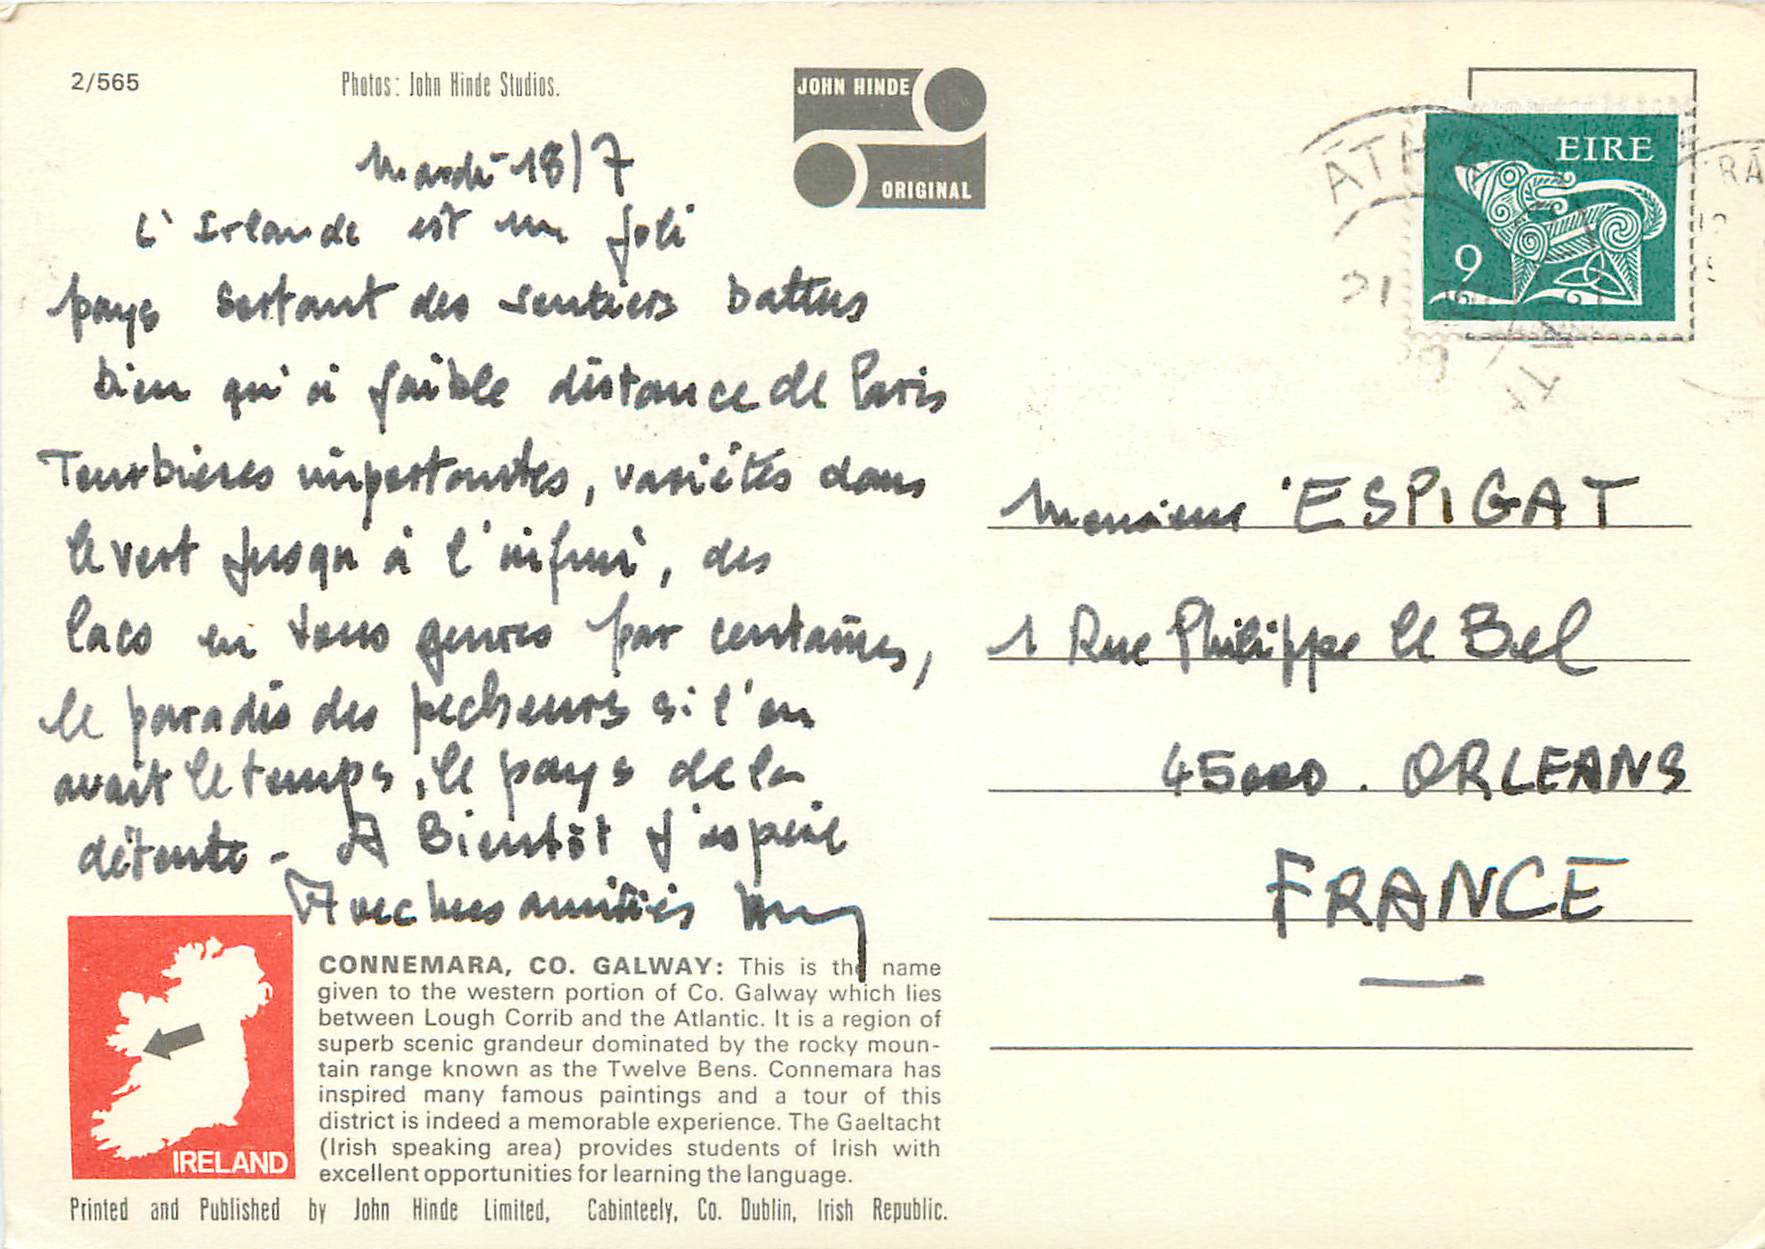 2/565
Photos: John Hinde Studios.
JOHN HINDE
ORIGINAL
EIRE
9
Mardi 18/7
L'Irlande est un joli
pays sortant des sentiers battus
bien qu'à faible distance de Paris
Tourbières importantes, variétés dans
le vert jusqu'à l'infini, des
lacs en tous genres par centaines,
le paradis des pecheurs si l'on
avait le temps, le pays de la
détente - A Bientôt j'espère
Avec mes amitiés
Monsieur ESPIGAT
1 Rue Philippe le Bel
45000 . ORLEANS
FRANCE
CONNEMARA, CO. GALWAY: This is the name
given to the western portion of Co. Galway which lies
between Lough Corrib and the Atlantic. It is a region of
superb scenic grandeur dominated by the rocky moun-
tain range known as the Twelve Bens. Connemara has
inspired many famous paintings and a tour of this
district is indeed a memorable experience. The Gaeltacht
(Irish speaking area) provides students of Irish with
excellent opportunities for learning the language.
IRELAND
Printed and Published by John Hinde Limited, Cabinteely, Co. Dublin, Irish Republic.